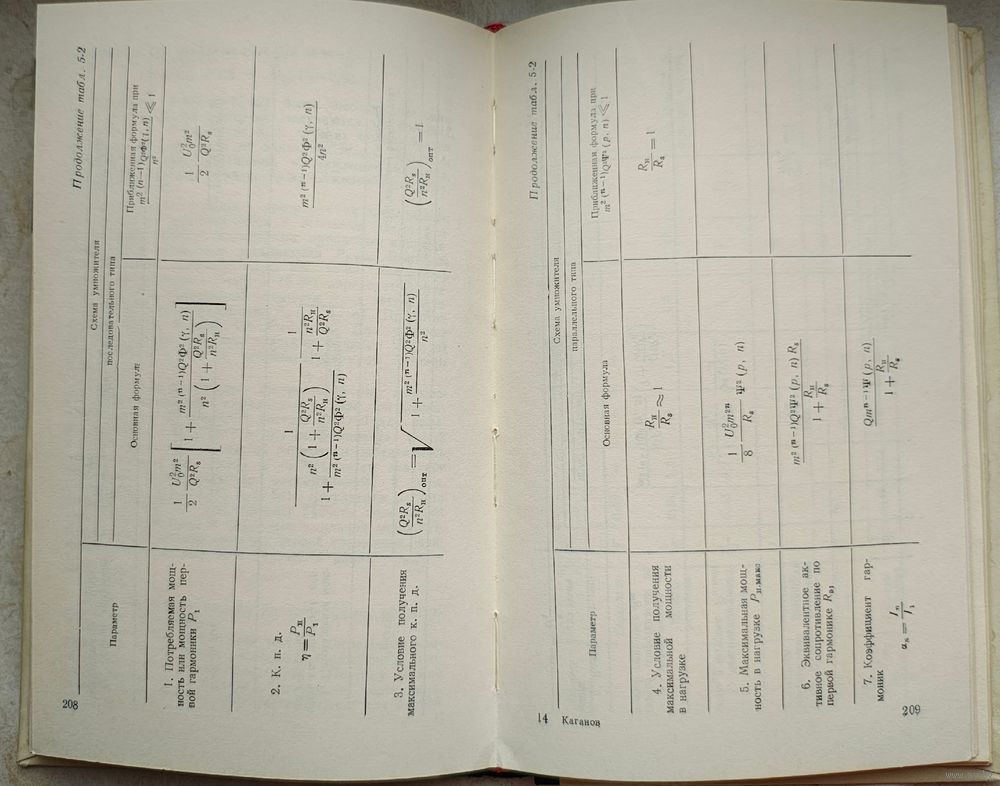 Продолжение табл. 5-2
Параметр
Схема умножителя
последовательного типа
Основная формула
Приближенная формула при
m²⁽ⁿ⁻¹⁾Q²Φ²(γ, n) / n² ≪ 1
1. Потребляемая мощ-
ность или мощность пер-
вой гармоники P₁
1/2 U₀²m²/Q²Rₛ [1 + m²⁽ⁿ⁻¹⁾Q²Φ²(γ, n) / n²(1 + Q²Rₛ/n²Rн)]
1/2 U₀²m²/Q²Rₛ
2. К. п. д.
η = Pн/P₁
1 / (1 + n²(1 + Q²Rₛ/n²Rн) / m²⁽ⁿ⁻¹⁾Q²Φ²(γ, n)) 1 / (1 + n²Rн/Q²Rₛ)
m²⁽ⁿ⁻¹⁾Q²Φ²(γ, n) / 4n²
3. Условие получения
максимального к. п. д.
(Q²Rₛ/n²Rн)опт = √(1 + m²⁽ⁿ⁻¹⁾Q²Φ²(γ, n) / n²)
(Q²Rₛ/n²Rн)опт = 1
208
Продолжение табл. 5-2
Параметр
Схема умножителя
параллельного типа
Основная формула
Приближенная формула при
m²⁽ⁿ⁻¹⁾QΨ²(p, n) ≪ 1
4. Условие получения
максимальной мощности
в нагрузке
Rн/Rₛ ≈ 1
Rн/Rₛ = 1
5. Максимальная мощ-
ность в нагрузке Pн.макс
1/8 U₀²m²ⁿ/Rₛ Ψ²(p, n)
6. Эквивалентное ак-
тивное сопротивление по
первой гармонике Rэ₁
m²⁽ⁿ⁻¹⁾Q²Ψ²(p, n) Rₛ / (1 + Rн/Rₛ)
7. Коэффициент гар-
моник
αₙ = Iₙ/I₁
Qmⁿ⁻¹Ψ(p, n) / (1 + Rн/Rₛ)
14 Каганов
209